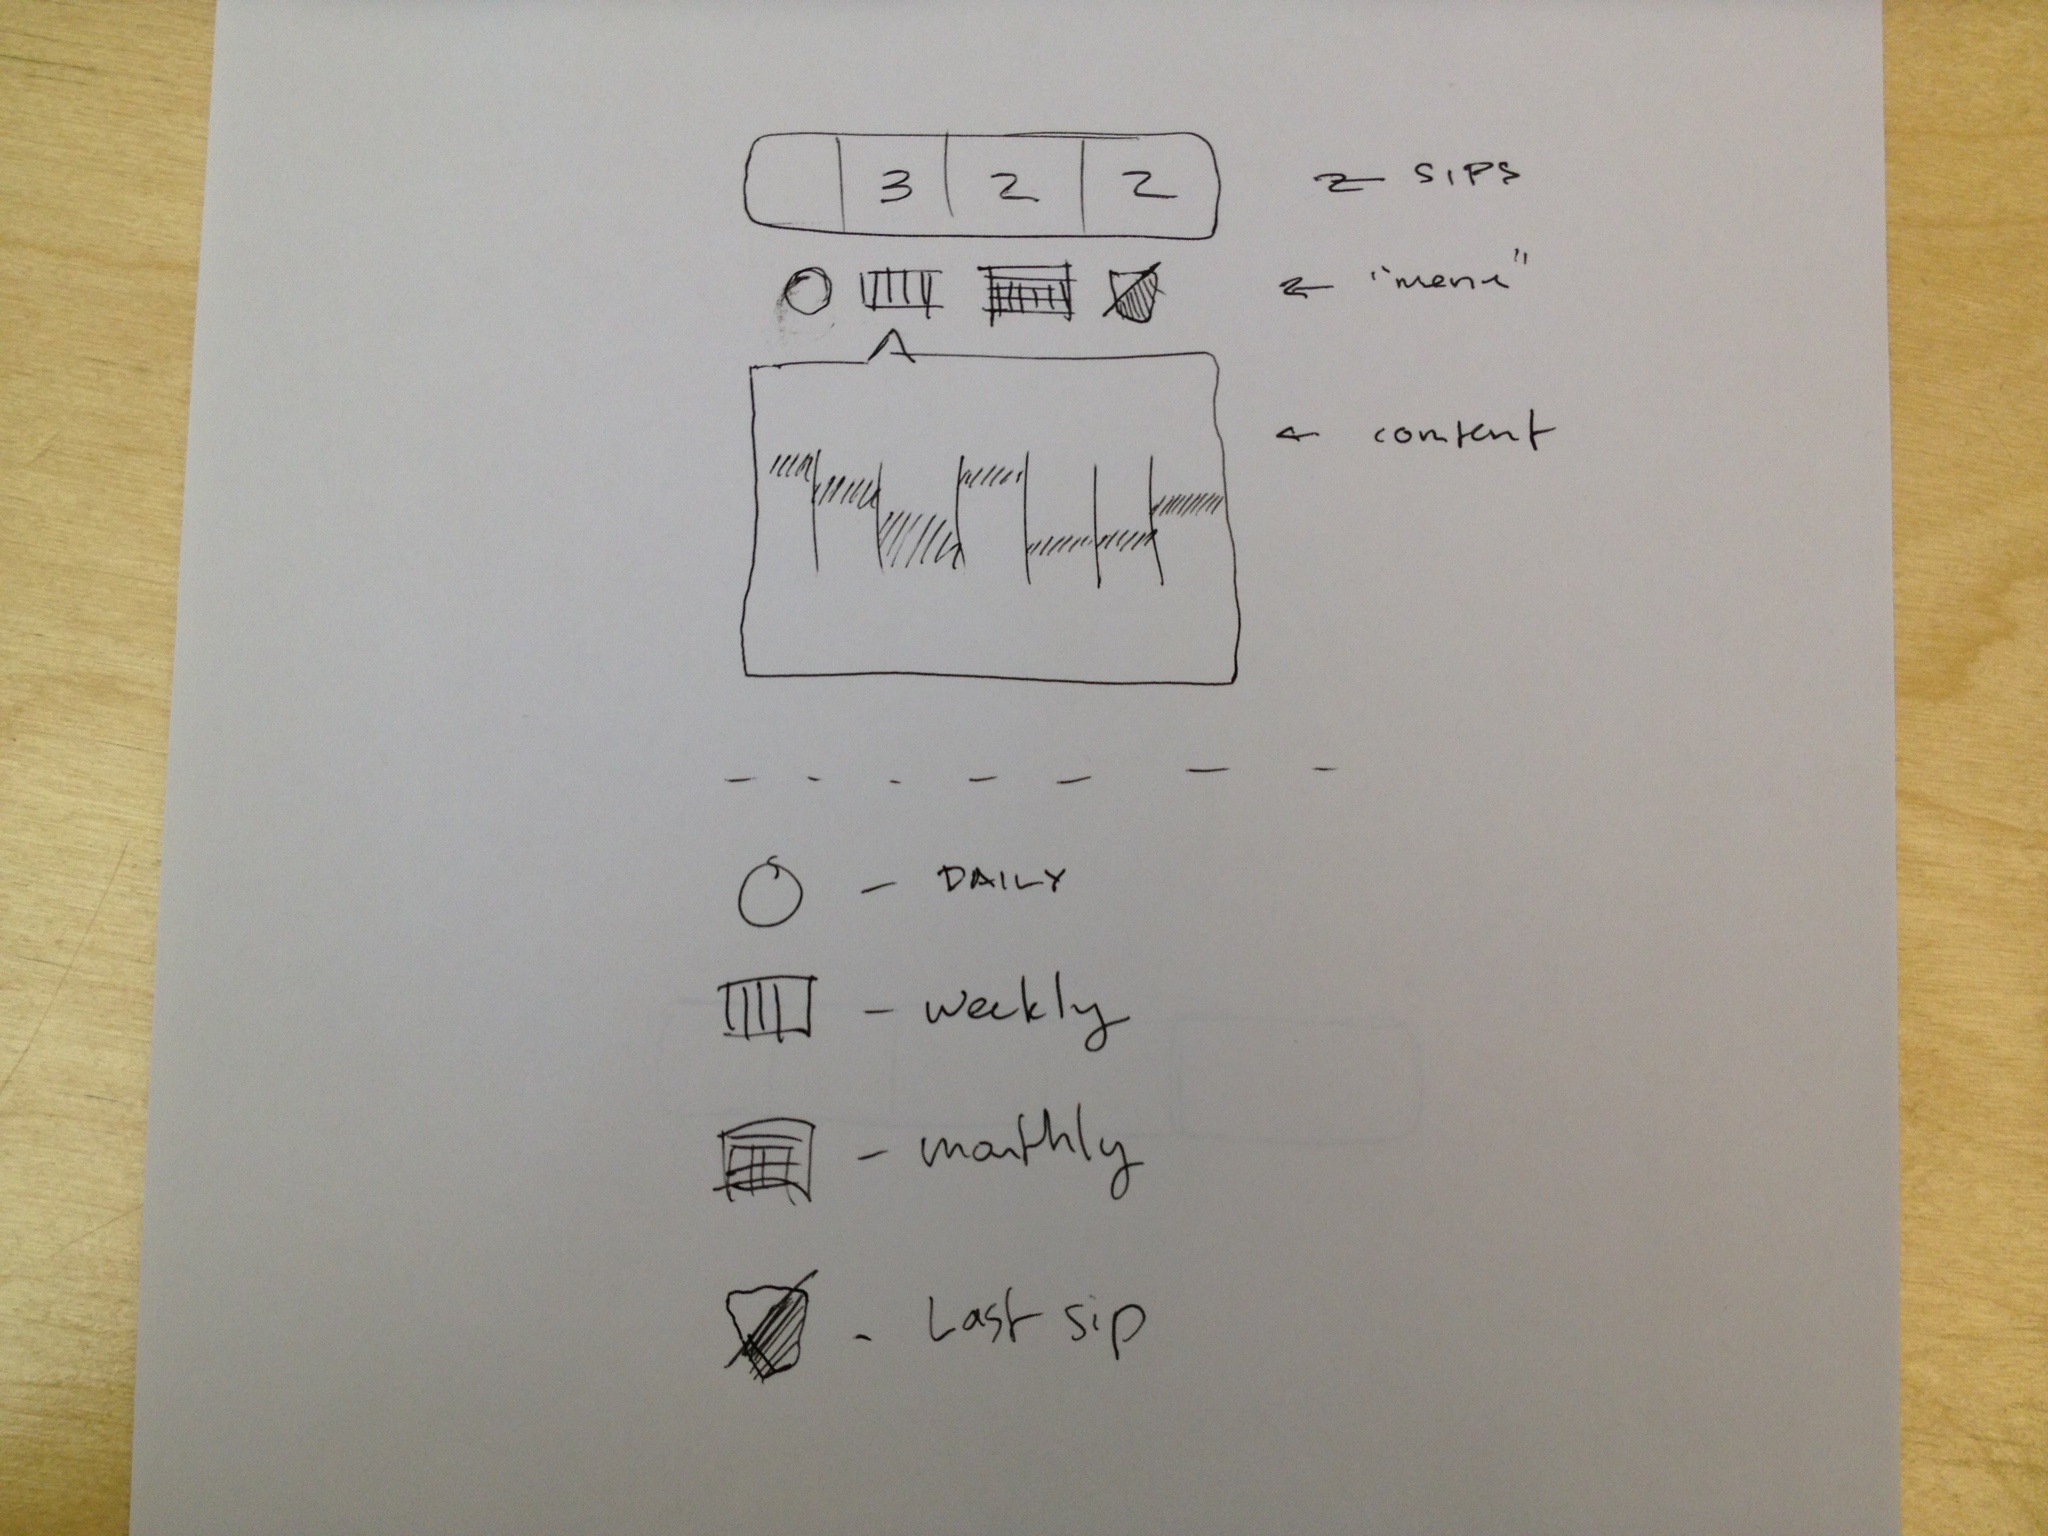 3 2 2 ← SIPS
← "menu"
← content
- DAILY
- weekly
- monthly
- Last sip